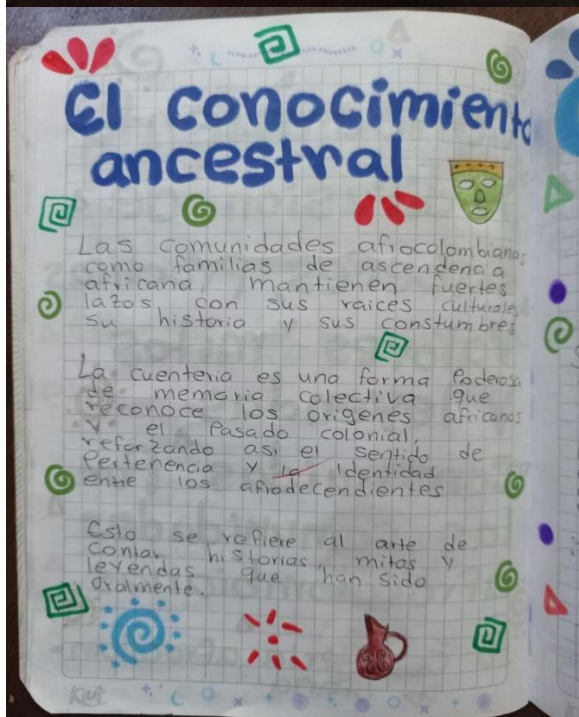 El conocimiento
ancestral
Las comunidades afrocolombianas
como familias de ascendencia
africana, mantienen fuertes
lazos con sus raices culturales
su historia y sus constumbres
La cuenteria es una forma Poderosa
de memoria colectiva que
reconoce los origenes africanos
y el Pasado colonial,
reforzando asi el sentido de
Pertenencia y la Identidad
entre los afrodecendientes
Esto se refiere al arte de
contar historias, mitos y
leyendas que han sido
oralmente.